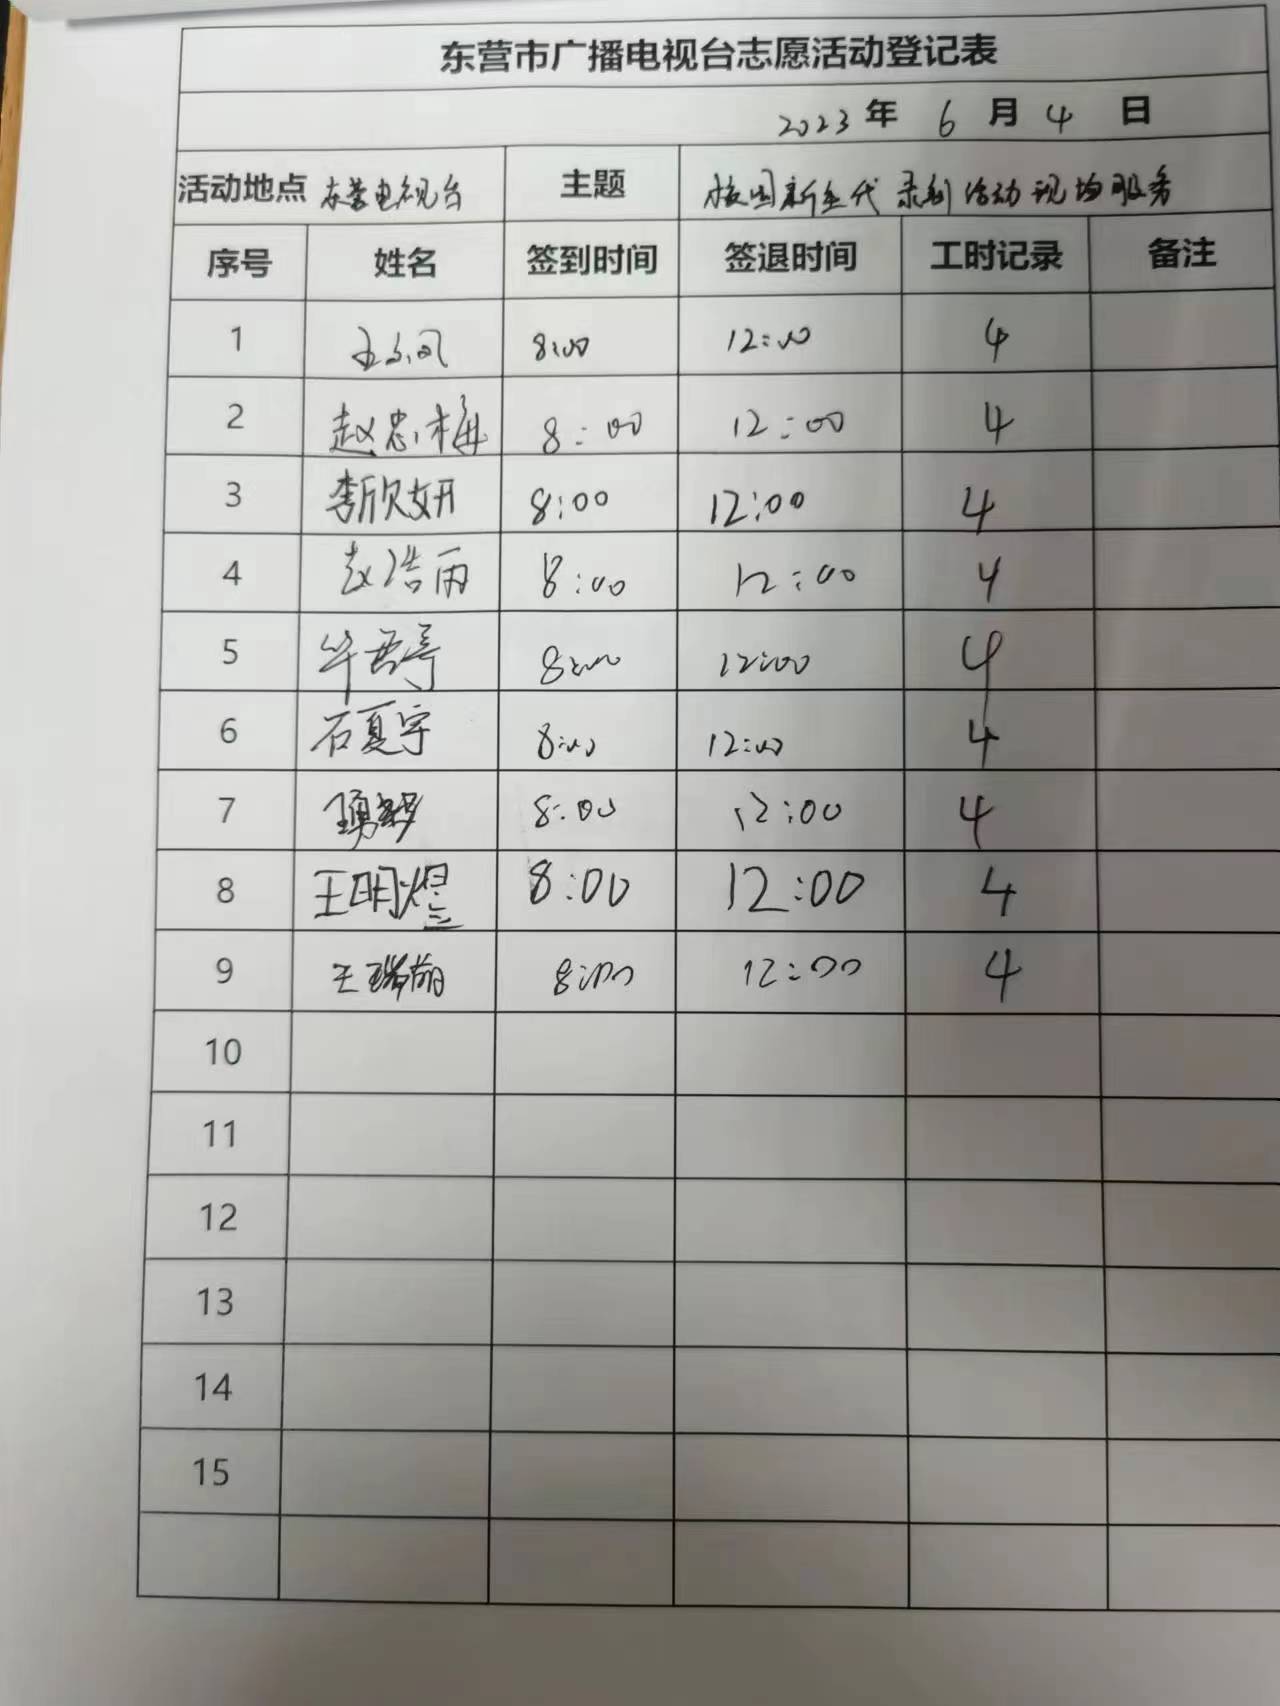 东营市广播电视台志愿活动登记表
2023年 6月 4日
活动地点 东营电视台 主题 校园新生代 录制活动现场服务
序号 姓名 签到时间 签退时间 工时记录 备注
1 8:00 12:00 4
2 赵忠梅 8:00 12:00 4
3 李欣妍 8:00 12:00 4
4 赵浩雨 8:00 12:00 4
5 8:00 12:00 4
6 石夏宇 8:00 12:00 4
7 8:00 12:00 4
8 王明煜 8:00 12:00 4
9 王瑞萌 8:00 12:00 4
10
11
12
13
14
15